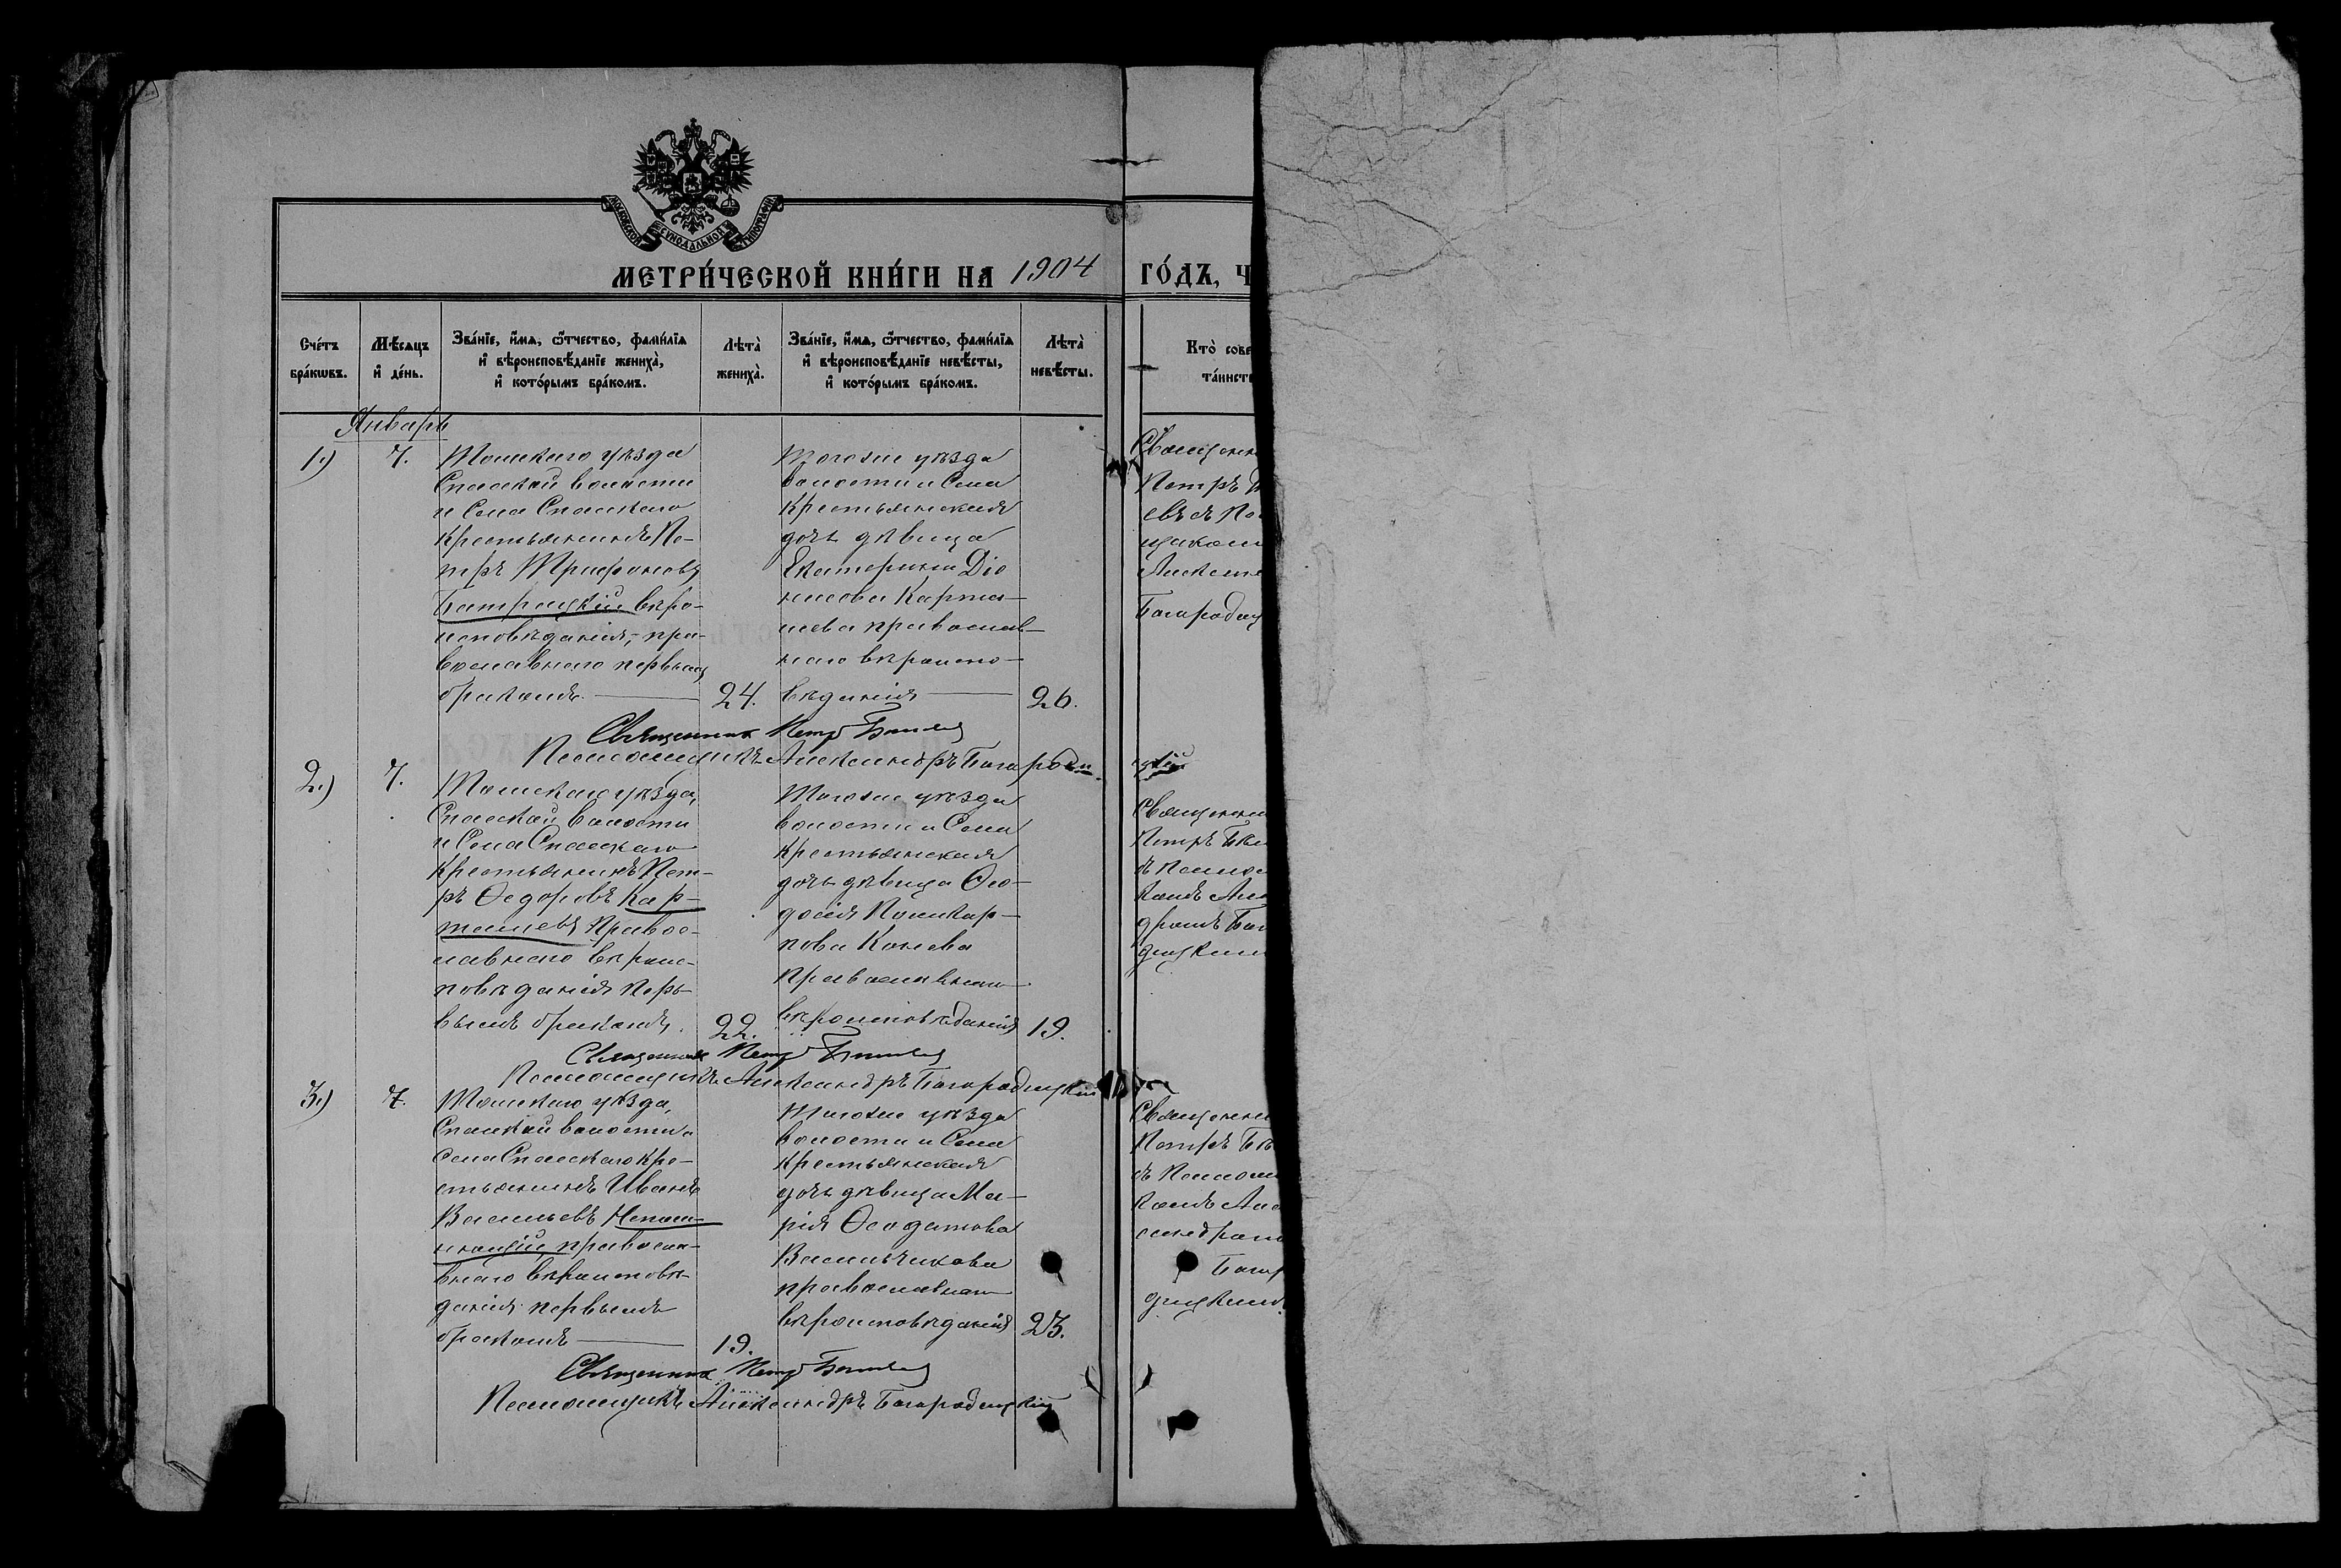 МОСКОВСКОЙ СУНОДАЛЬНОЙ ТИПОГРАФІИ
МЕТРИ́ЧЕСКОЙ КНИ́ГИ НА 1904 ГО́ДЪ, Ч
Сче́тъ бра́кѡвъ.
Мѣ́сяцъ и҆ де́нь.
Зва́нїе, и҆́мѧ, ѻ҆́тчество, фами́лїѧ
и҆ вѣроисповѣ́данїе жениха̀,
и҆ кото́рымъ бра́комъ.
Лѣта̀ жениха̀.
Зва́нїе, и҆́мѧ, ѻ҆́тчество, фами́лїѧ
и҆ вѣроисповѣ́данїе невѣ́сты,
и҆ кото́рымъ бра́комъ.
Лѣта̀ невѣ́сты.
Кто̀ сове
та́инств
Январь
1.) 7.
Томскаго уѣзда
Спасской волости
и Села Спасскаго
крестьянинъ Пе-
тръ Трифоновъ
Батрацкій вѣро-
исповѣданія, пра-
вославнаго первымъ
бракомъ.
24.
Тогоже уѣзда
волости и Села
крестьянская
дочь дѣвица
Екатерина Діо
нисова Карта-
шева православ-
наго вѣроиспо-
вѣданія
26.
Священн
Петръ
евъ съ По
щиком
Алексан
Богородиц
Священникъ Петръ
Помощникъ Александръ Богородиц
кій
2.) 7.
Томскаго уѣзда,
Спасской волости
и Села Спасскаго
крестьянинъ Пет-
ръ Ѳедоровъ Кар-
ташевъ Правос-
лавнаго вѣроис-
повѣданія Пер-
вымъ бракомъ.
22.
Тогоже уѣзда
волости и Села
крестьянская
дочь дѣвица Ѳео-
досія Поликар-
пова Конева
Православнаго
вѣроисповѣданія
19.
Священни
Петръ Бѣл
съ Помощ
комъ Алек
дромъ Бог
дицким
Священникъ Петръ
Помощникъ Александръ Богородицкій
3.) 7.
Томскаго уѣзда,
Спасской волости и
Села Спасскаго кре-
стьянинъ Иванъ
Васильевъ
православ-
внаго вѣроисповѣ-
данія первымъ
бракомъ
19.
Тогоже уѣзда
волости и Села
крестьянская
дочь дѣвица Ма-
рія Ѳеодотова
Васильчикова
православнаго
вѣроисповѣданія
23.
Священни
Петръ Бѣ
съ Помощ
комъ Алек
сандромъ
Богор
дицкимъ.
Священникъ Петръ
Помощникъ Александръ Богородицкій